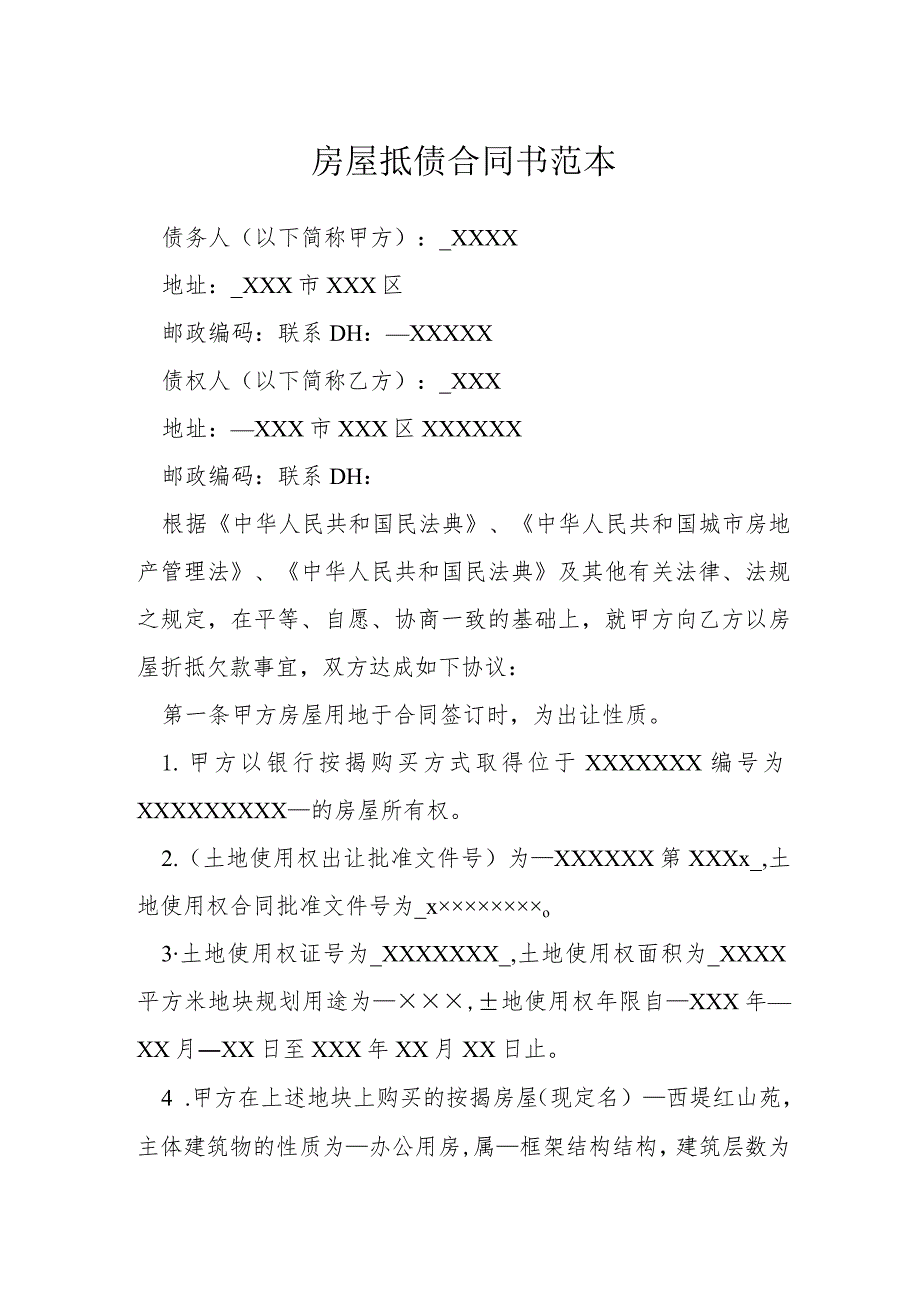 房屋抵债合同书范本
债务人（以下简称甲方）：_XXXX
地址：_XXX 市 XXX 区
邮政编码：联系 DH：—XXXXX
债权人（以下简称乙方）：_XXX
地址：—XXX 市 XXX 区 XXXXXX
邮政编码：联系 DH：
根据《中华人民共和国民法典》、《中华人民共和国城市房地
产管理法》、《中华人民共和国民法典》及其他有关法律、法规
之规定，在平等、自愿、协商一致的基础上，就甲方向乙方以房
屋折抵欠款事宜，双方达成如下协议：
第一条甲方房屋用地于合同签订时，为出让性质。
1. 甲方以银行按揭购买方式取得位于 XXXXXXX 编号为
XXXXXXXXX—的房屋所有权。
2.（土地使用权出让批准文件号）为—XXXXXX 第 XXXx_,土
地使用权合同批准文件号为_x××××××××。
3·土地使用权证号为_XXXXXXX_,土地使用权面积为_XXXX
平方米地块规划用途为—×××,±地使用权年限自—XXX 年—
XX 月—XX 日至 XXX 年 XX 月 XX 日止。
4 .甲方在上述地块上购买的按揭房屋（现定名）—西堤红山苑，
主体建筑物的性质为—办公用房,属—框架结构结构，建筑层数为